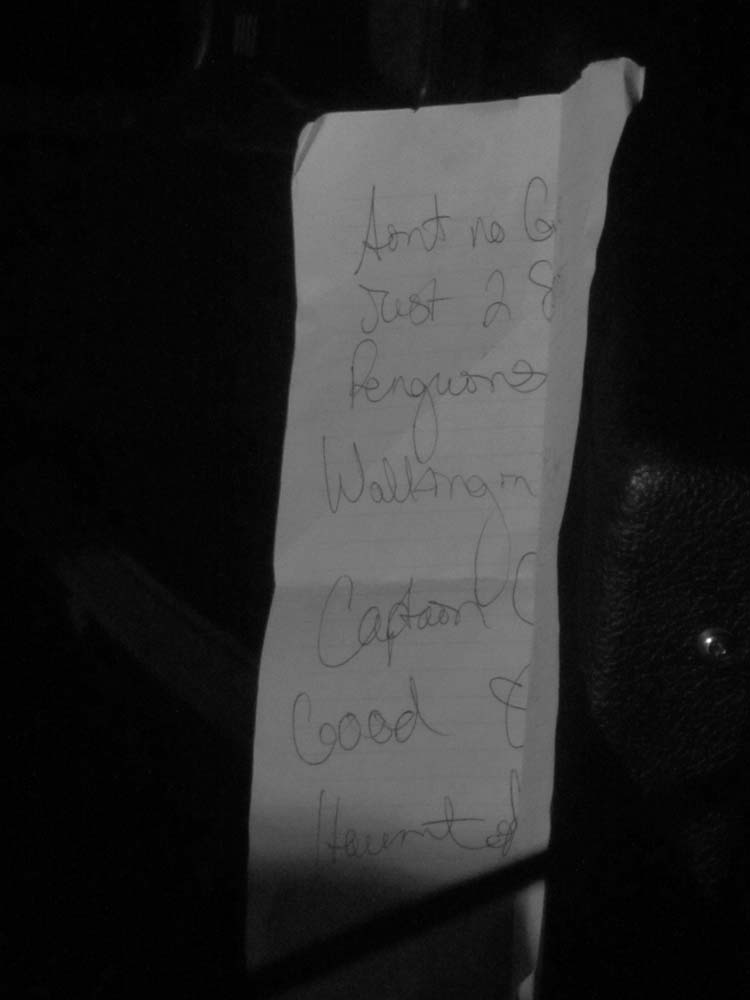 Aint no G
Just 2 8
Penguins
Walking in
Captain C
Good
Haunted